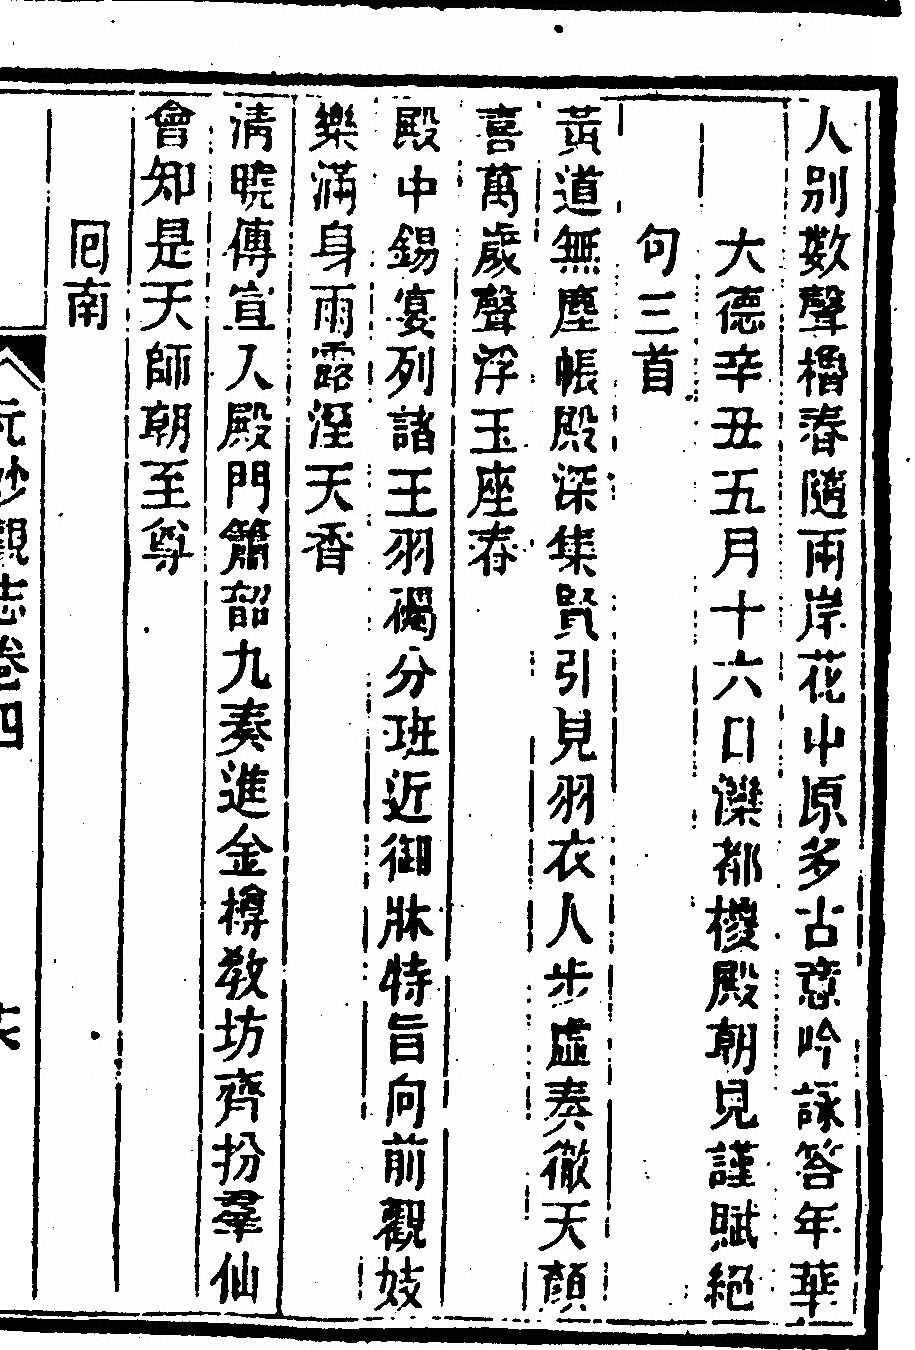 人别數聲櫓春隨兩岸花中原多古意吟詠答年華
大德辛丑五月十六日灤都椶殿朝見謹賦絕
句三首
黃道無塵帳殿深集賢引見羽衣人步虛奏徹天顏
喜萬歲聲浮玉座春
殿中錫宴列諸王羽襡分班近御牀特旨向前觀妓
樂滿身雨露溼天香
清曉傳宣入殿門簫韶九奏進金樽教坊齊扮羣仙
會知是天師朝至尊
囘南
元妙觀志卷四